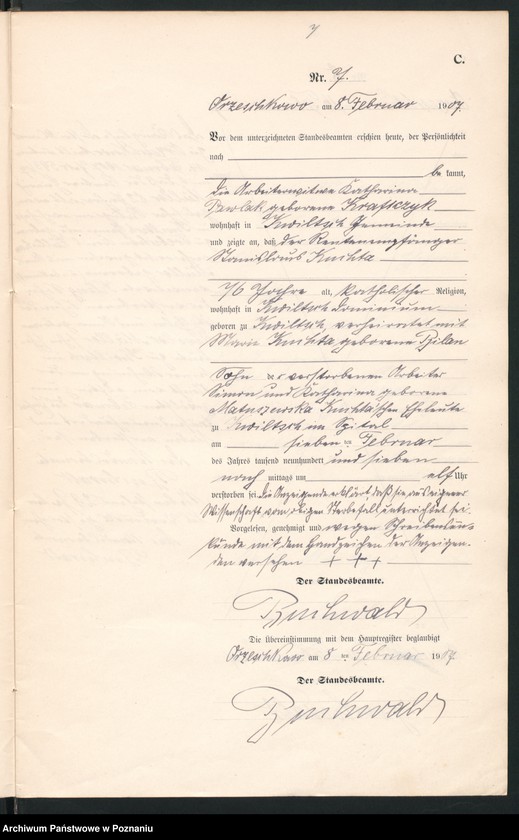 7
C.
Nr. 7.
Orzeschkowo am 8. Februar 1907
Vor dem unterzeichneten Standesbeamten erschien heute, der Persönlichkeit
nach
be kannt,
die Arbeiterwitwe Katharina
Pawlak geborene Krafczyk
wohnhaft in Kwiltsch Gemeinde
und zeigte an, daß der Rentenempfänger
Stanislaus Kuchta
76 Jahre alt, katholischer Religion,
wohnhaft in Kwiltsch Dominium
geboren zu Kwiltsch, verheiratet mit
Marie Kuchta geborene Pilan
Sohn der verstorbenen Arbeiter
Simon und Katharina geborene
Matuszewska Kuchta'schen Eheleute
zu Kwiltsch im Spital
am sieben ten Februar
des Jahres tausend neunhundert und sieben
nach mittags um elf Uhr
verstorben sei. Die Anzeigende erklärt, daß sie aus eigener
Wissenschaft vom obigen Sterbefall unterrichtet sei.
Vorgelesen, genehmigt und wegen Schreibensun-
kunde mit dem Handzeichen der Anzeigen-
den versehen + + +
Der Standesbeamte.
Buchwald
Die Übereinstimmung mit dem Hauptregister beglaubigt
Orzeschkowo am 8 ten Februar 1907
Der Standesbeamte.
Buchwald
Archiwum Państwowe w Poznaniu